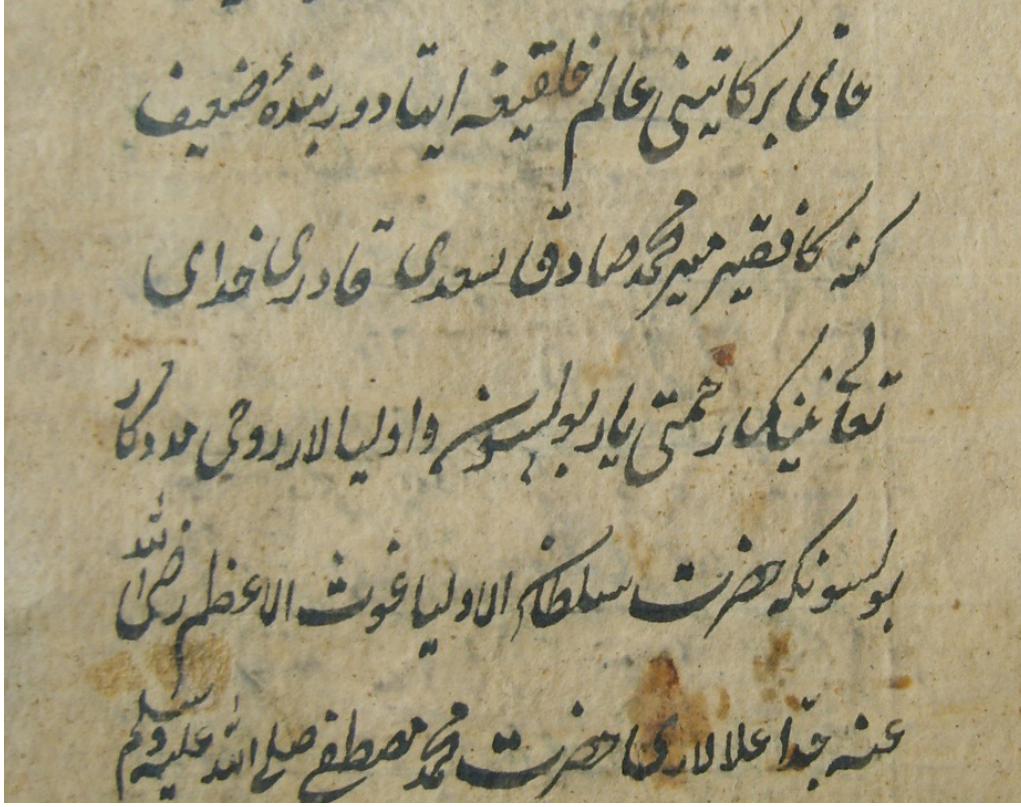 برکاتینی عالم خلقیغه ایتادور بندهٔ ضعیف
کمینه فقیر میر محمد صادق سعدی قادری خدای
تعالی نینک رحمتی یار بولسون و اولیالار روحی مددکار
بولسونکه حضرت سلطان الاولیا غوث الاعظم رضی الله
عنه جدّ اعلالاری حضرت محمد مصطفی صلی الله علیه وسلم